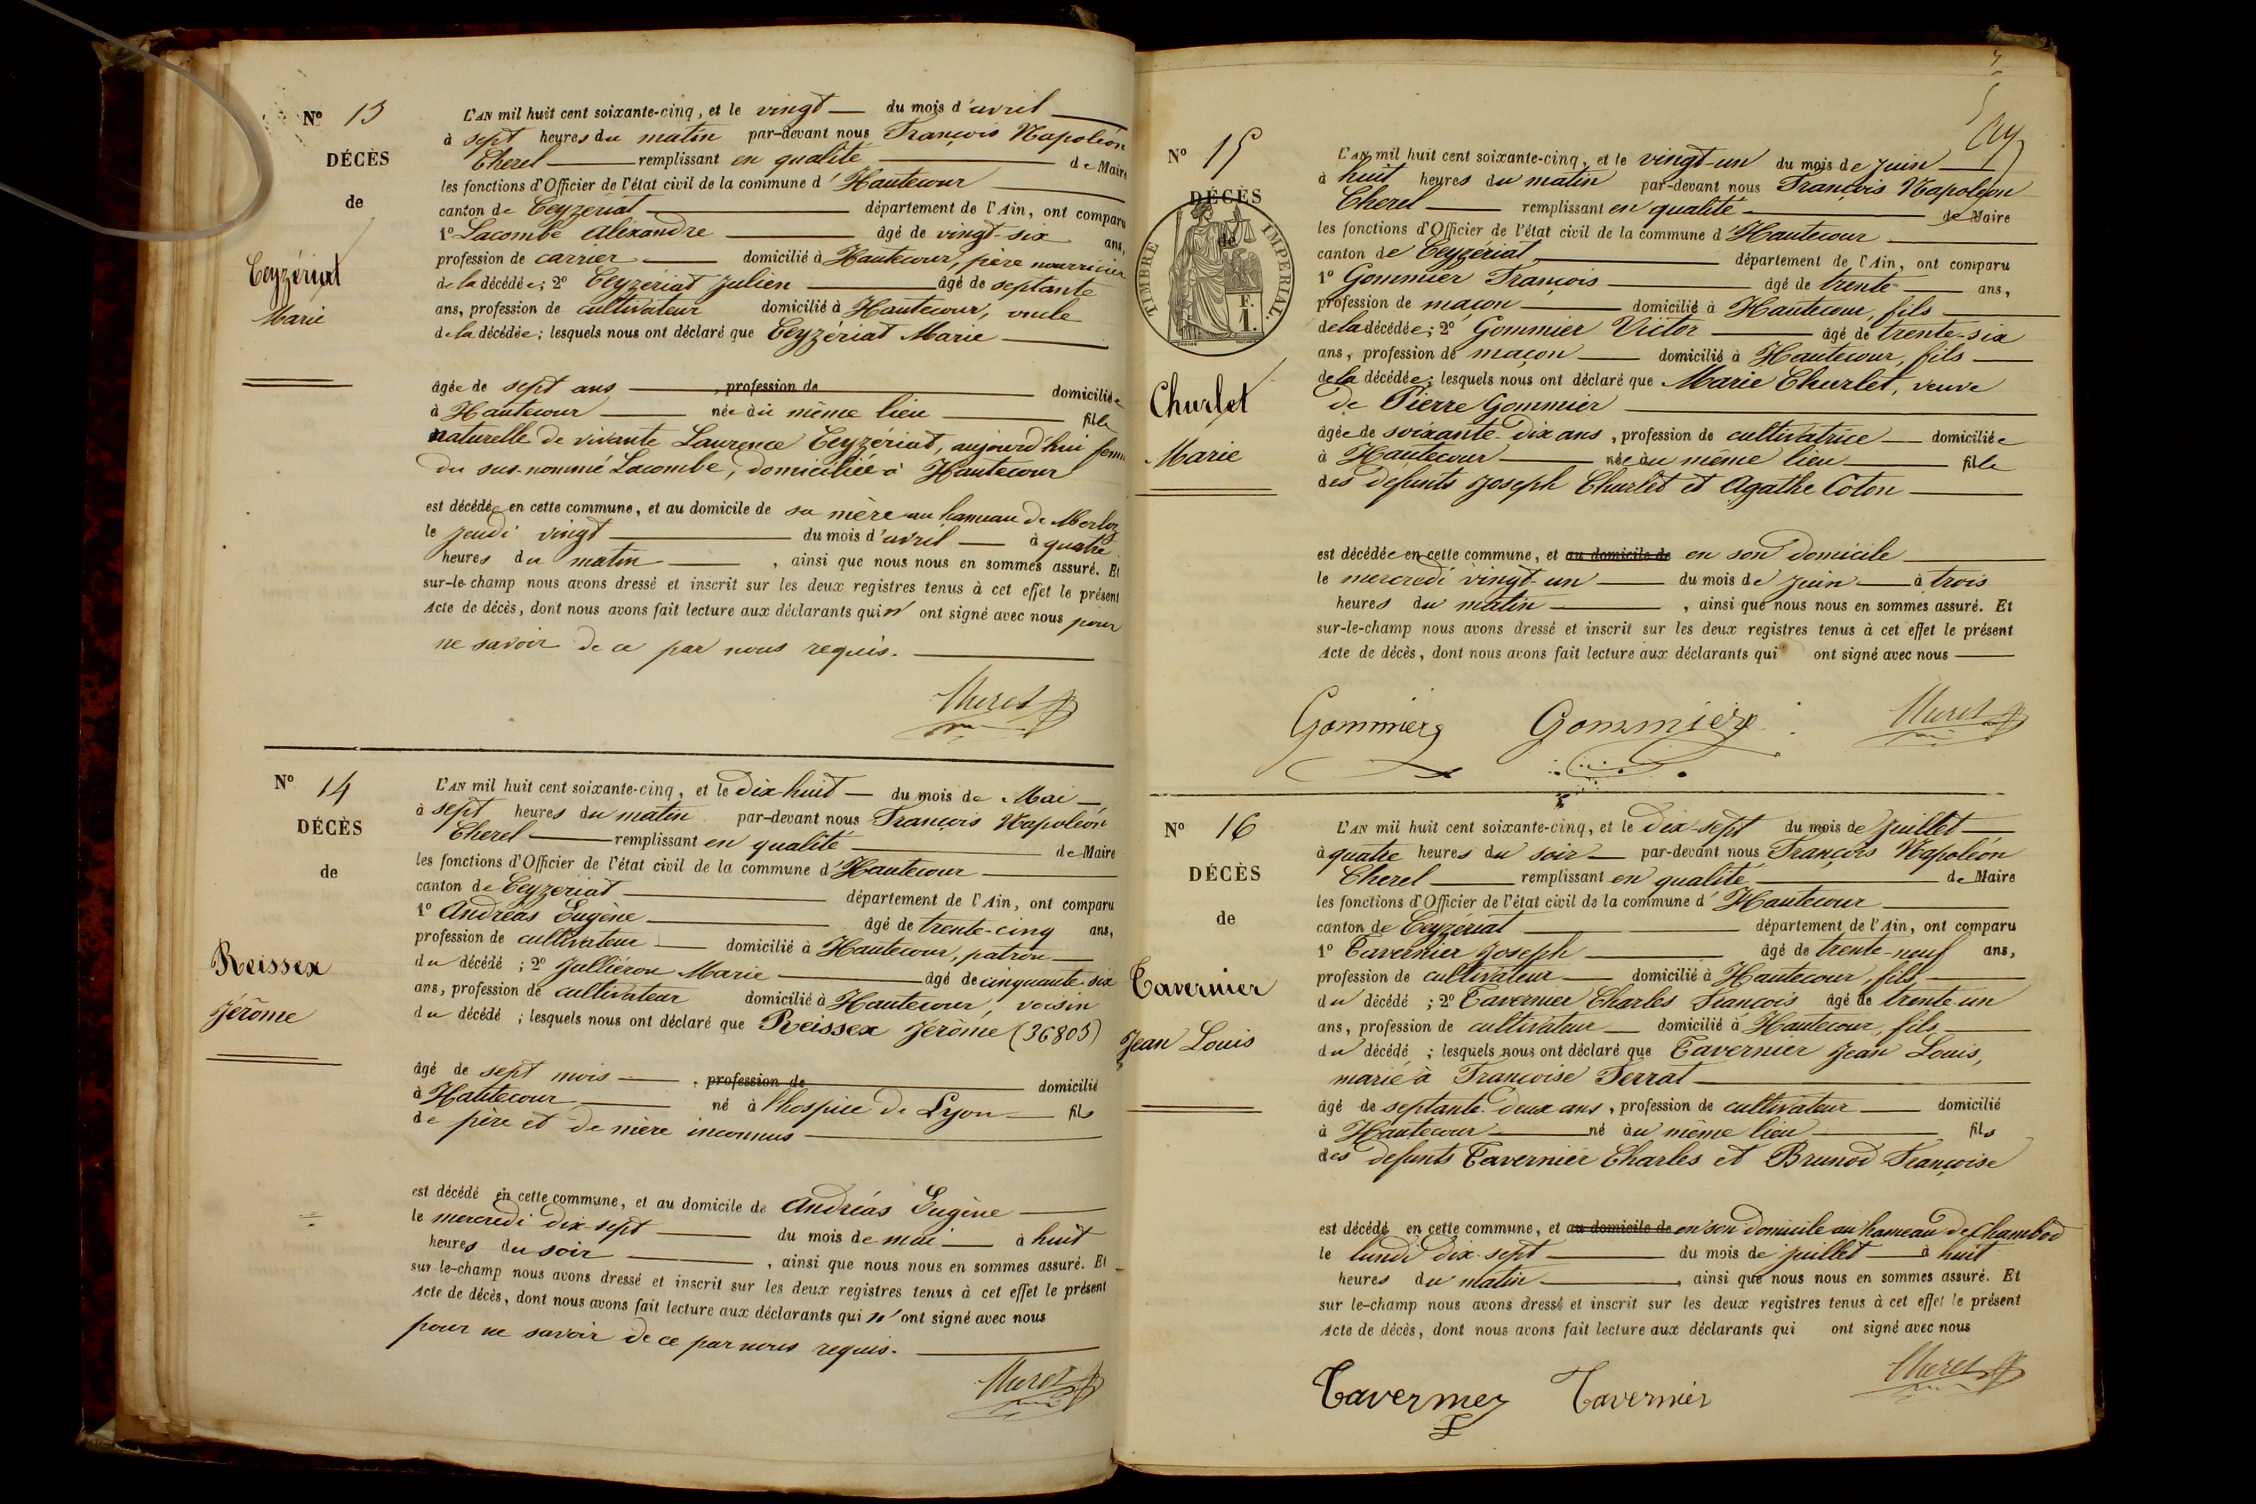 N° 13
DÉCÈS
de
Ceyzériat
Marie
L'AN mil huit cent soixante-cinq, et le vingt du mois d'avril
à sept heures du matin par-devant nous François Napoléon
Cherel remplissant en qualité de Maire
les fonctions d'Officier de l'état civil de la commune d'Hautecour
canton de Ceyzériat département de l'Ain, ont comparu
1° Lacombe Alexandre âgé de vingt six ans,
profession de carrier domicilié à Hautecour, père nourricier
de la décédée; 2° Ceyzériat Julien âgé de septante
ans, profession de cultivateur domicilié à Hautecour, oncle
de la décédée; lesquels nous ont déclaré que Ceyzériat Marie
âgée de sept ans, profession de domiciliée
à Hautecour née au même lieu fille
naturelle de vivante Laurence Ceyzériat, aujourd'hui femme
du sus-nommé Lacombe, domiciliée à Hautecour
est décédée en cette commune, et au domicile de sa mère au hameau de Merloz
le jeudi vingt du mois d'avril à quatre
heures du matin, ainsi que nous nous en sommes assuré. Et
sur-le-champ nous avons dressé et inscrit sur les deux registres tenus à cet effet le présent
Acte de décès, dont nous avons fait lecture aux déclarants qui n'ont signé avec nous pour
ne savoir de ce par nous requis.
N° 14
DÉCÈS
de
Reissex
Jérôme
L'AN mil huit cent soixante-cinq, et le dix-huit du mois de Mai
à sept heures du matin par-devant nous François Napoléon
Cherel remplissant en qualité de Maire
les fonctions d'Officier de l'état civil de la commune d'Hautecour
canton de Ceyzeriat département de l'Ain, ont comparu
1° Andréas Eugène âgé de trente-cinq ans,
profession de cultivateur domicilié à Hautecour, patron
du décédé; 2° Julliéron Marie âgé de cinquante-six
ans, profession de cultivateur domicilié à Hautecour, voisin
du décédé; lesquels nous ont déclaré que Reissex Jérôme (36805)
âgé de sept mois, profession de domicilié
à Hautecour né à l'hospice de Lyon fils
de père et de mère inconnus
est décédé en cette commune, et au domicile de Andréas Eugène
le mercredi dix-sept du mois de mai à huit
heures du soir, ainsi que nous nous en sommes assuré. Et
sur-le-champ nous avons dressé et inscrit sur les deux registres tenus à cet effet le présent
Acte de décès, dont nous avons fait lecture aux déclarants qui n'ont signé avec nous
pour ne savoir de ce par nous requis.
N° 15
DÉCÈS
de
TIMBRE IMPERIAL.
F.
1.
Churlet
Marie
L'AN mil huit cent soixante-cinq, et le vingt-un du mois de juin
à huit heures du matin par-devant nous François Napoléon
Cherel remplissant en qualité de Maire
les fonctions d'Officier de l'état civil de la commune d'Hautecour
canton de Ceyzériat département de l'Ain, ont comparu
1° Gommier François âgé de trente ans,
profession de maçon domicilié à Hautecour, fils
de la décédée; 2° Gommier Victor âgé de trente-six
ans, profession de maçon domicilié à Hautecour, fils
de la décédée; lesquels nous ont déclaré que Marie Churlet, veuve
de Pierre Gommier
âgée de soixante-dix ans, profession de cultivatrice domiciliée
à Hautecour née au même lieu fille
des défunts Joseph Churlet et Agathe Coton
est décédée en cette commune, et au domicile de en son domicile
le mercredi vingt-un du mois de juin à trois
heures du matin, ainsi que nous nous en sommes assuré. Et
sur-le-champ nous avons dressé et inscrit sur les deux registres tenus à cet effet le présent
Acte de décès, dont nous avons fait lecture aux déclarants qui ont signé avec nous
Gommier Gommier
N° 16
DÉCÈS
de
Tavernier
Jean Louis
L'AN mil huit cent soixante-cinq, et le dix-sept du mois de juillet
à quatre heures du soir par-devant nous François Napoléon
Cherel remplissant en qualité de Maire
les fonctions d'Officier de l'état civil de la commune d'Hautecour
canton de Ceyzériat département de l'Ain, ont comparu
1° Tavernier Joseph âgé de trente-neuf ans,
profession de cultivateur domicilié à Hautecour, fils
du décédé; 2° Tavernier Charles François âgé de trente-un
ans, profession de cultivateur domicilié à Hautecour, fils
du décédé; lesquels nous ont déclaré que Tavernier Jean Louis,
marié à Françoise Ferrat
âgé de septante-deux ans, profession de cultivateur domicilié
à Hautecour né au même lieu fils
des défunts Tavernier Charles et Brunod Françoise
est décédé en cette commune, et au domicile de en son domicile au hameau de Chambod
le lundi dix-sept du mois de juillet à huit
heures du matin, ainsi que nous nous en sommes assuré. Et
sur le-champ nous avons dressé et inscrit sur les deux registres tenus à cet effet le présent
Acte de décès, dont nous avons fait lecture aux déclarants qui ont signé avec nous
Tavernier Tavernier